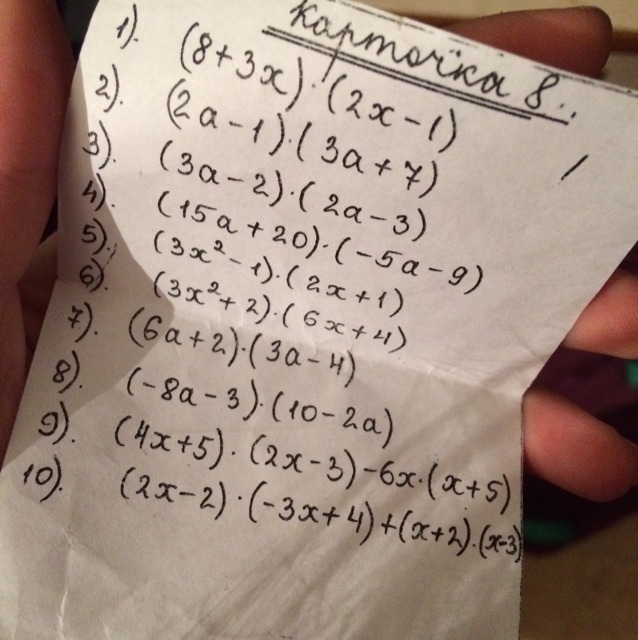 Карточка 8.
1). (8+3x)·(2x-1)
2). (2a-1)·(3a+7)
3). (3a-2)·(2a-3)
4). (15a+20)·(-5a-9)
5). (3x²-1)·(2x+1)
6). (3x²+2)·(6x+4)
7). (6a+2)·(3a-4)
8). (-8a-3)·(10-2a)
9). (4x+5)·(2x-3)-6x·(x+5)
10). (2x-2)·(-3x+4)+(x+2)·(x-3)